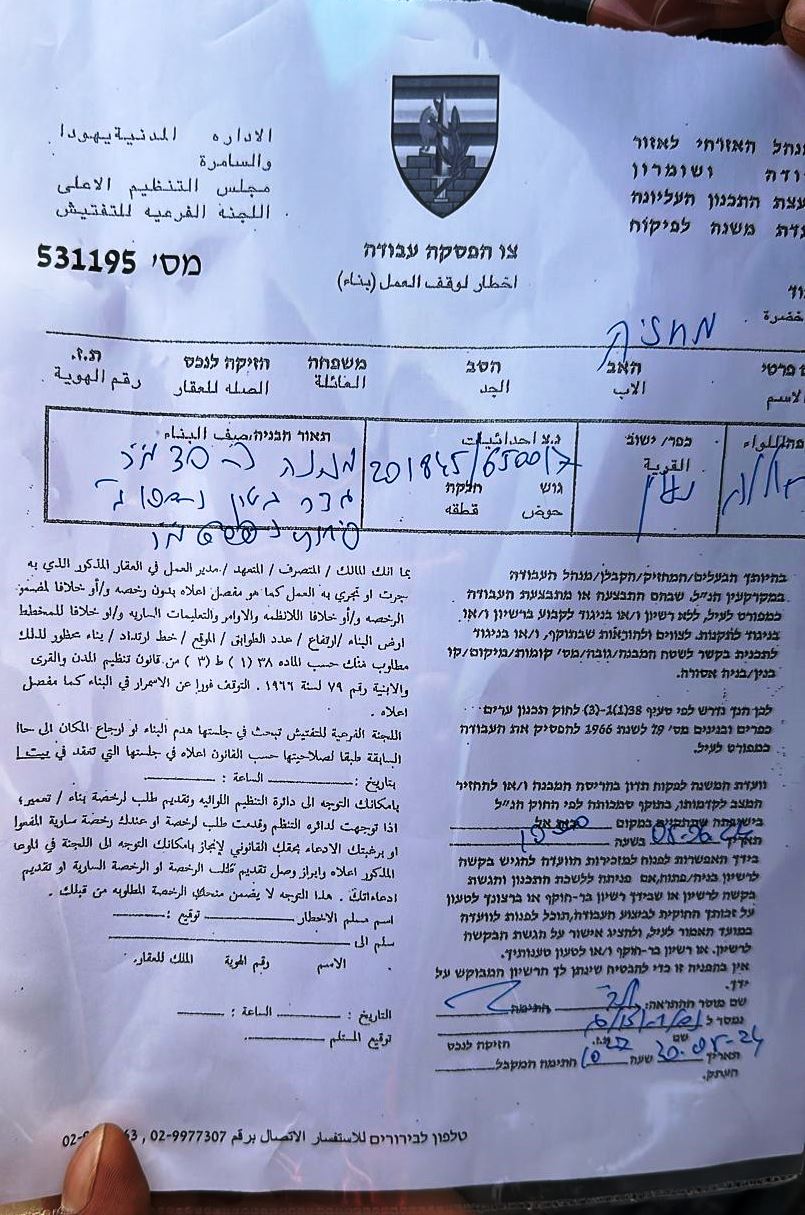 נהל האזרחי לאזור
ודה ושומרון
עצת התכנון העליונה
עדת משנה לפיקוח
الاداره المدنية يهودا
والسامرة
مجلس التنظيم الاعلى
اللجنه الفرعيه للتفتيش
מס' 531195
צו הפסקה עבודה
اخطار لوقف العمل (بناء)
ת.ז. זיקה לנכס משפחה הסב האב פרטי
رقم الهوية الصله للعقار العائلة الجد الاب الاسم
כפר/ישוב
القرية
נ.צ احداثيات
201845/650017
גוש חלקה
حوض قطعه
תאור הבניה/صيف البناء
מבנה כ-30 מ"ר
בהיותך הבעלים/המחזיק/הקבלן/מנהל העבודה
במקרקעין הנ"ל, שבהם התבצעה או מתבצעת העבודה
כמפורט לעיל, ללא רשיון ו/או בניגוד לקבוע ברשיון ו/או
בניגוד לתקנות, לצווים ולהוראות שבתוקף, ו/או בניגוד
לתכנית בקשר לשטח המבנה/גובה/מס' קומות/מיקום/קו
בנין/בניה אסורה.
לכן הנך נדרש לפי סעיף 38(1)-(3) לחוק תכנון ערים
כפרים ובנינים מס' 79 לשנת 1966 להפסיק את העבודה
כמפורט לעיל.
וועדת המשנה לפקוח תדון בהריסת המבנה ו/או להחזיר
המצב לקדמותו, בתוקף סמכותה לפי החוק הנ"ל
בישיבתה שתתקיים במקום בית אל
תאריך בשעה
בידך האפשרות לפנות למזכירות הוועדה להגיש בקשה
לרשיון בניה/פתוח, אם פניתה ללשכת התכנון והגשת
בקשה לרשיון או שבידך רשיון בר-תוקף או ברצונך לטעון
על זכותך החוקית לביצוע העבודה, תוכל לפנות לוועדה
במועד האמור לעיל, ולהציג אישור על הגשת הבקשה
לרשיון. או רשיון בר-תוקף ו/או לטעון טענותיך.
אין בהפניה זו כדי להבטיח שינתן לך הרשיון המבוקש על
ידך.
שם מוסר ההתראה: חתימה
נמסר ל
שם ת.ז. זיקה לנכס
תאריך 30.05.24 שעה חתימת המקבל
העתק.
بما انك المالك / المتصرف / المتعهد / مدير العمل في العقار المذكور الذي به
جرت او تجري به العمل كما هو مفصل اعلاه بدون رخصه و/أو خلافا لمضمو
الرخصه و/أو خلافا للانظمه والاوامر والتعليمات الساريه و/او خلافا للمخطط
ارض البناء /ارتفاع / عدد الطوابق / الموقع / خط ارتداد / بناء محظور لذلك
مطلوب منك حسب الماده ٣٨ (١) ط (٣) من قانون تنظيم المدن والقرى
والابنية رقم ٧٩ لسنة ١٩٦٦ . التوقف فورا عن الاسمرار في البناء كما مفصل
اعلاه .
اللجنة الفرعية للتفتيش تبحث في جلستها هدم البناء او ارجاع المكان الى حاا
السابقة طبقا لصلاحيتها حسب القانون اعلاه في جلستها التي تنعقد في بيت ا
بتاريخ : الساعة :
بامكانك التوجه الى دائرة التنظيم اللوائيه وتقديم طلب لرخصة بناء / تعمير؛
اذا توجهت لدائره التنظم وقدمت طلب لرخصة او عندك رخصة سارية المفعوا
او برغبتك الادعاء بحقك القانوني لإنجاز بامكانك التوجه الى اللجنة في الموعا
المذكور اعلاه وابراز وصل تقديم طلب الرخصة او الرخصة السارية او تقديم
ادعاءاتك . هذا التوجه لا يضمن منحك الرخصة المطلوبه من قبلك .
اسم مسلم الاخطار توقيع :
سلم الى
الاسم رقم الهوية الملك للعقار.
التاريخ : الساعة :
توقيع المستلم
טלפון לבירורים للاستفسار الاتصال برقم 02-9977307 , 02- 63